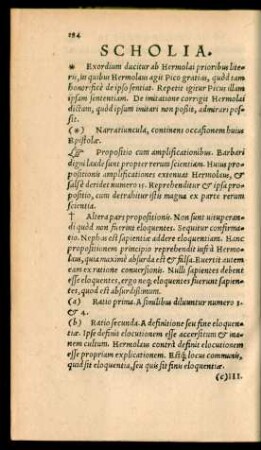 194
SCHOLIA.
* Exordium ducitur ab Hermolai prioribus lite-
ris, in quibus Hermolaus agit Pico gratias, quòd tam
honorificè de ipso sentiat. Repetit igitur Picus illam
ipsam sententiam. De imitatione corrigit Hermolai
dictum, quòd ipsum imitari non possit, admirari pos-
sit.
(*) Narratiuncula, continens occasionem huius
Epistolæ.
Propositio cum amplificationibus. Barbari
digni laude sunt propter rerum scientiam. Huius pro-
positionis amplificationes extenuat Hermolaus, &
falsè deridet numero 15. Reprehenditur & ipsa pro-
positio, cum detrahitur istis magna ex parte rerum
scientia.
† Altera pars propositionis. Non sunt uituperan-
di quòd non fuerint eloquentes. Sequitur confirma-
tio. Nephas est sapientiæ addere eloquentiam. Hanc
propositionem principio reprehendit infrà Hermo-
laus, quia maximè absurda est & falsa. Euertit autem
eam ex ratione conuersionis. Nulli sapientes debent
esse eloquentes, ergo neq; eloquentes fuerunt sapien-
tes, quod est absurdissimum.
(a) Ratio prima. A similibus diluuntur numero 1
& 4.
(b) Ratio secunda. A definitione seu fine eloquen-
tiæ. Ipse definit elocutionem esse accersitum & ina-
nem cultum. Hermolaus contrà definit elocutionem
esse propriam explicationem. Estq; locus communis,
quid sit eloquentia, seu quis sit finis eloquentiæ.
(c)III.